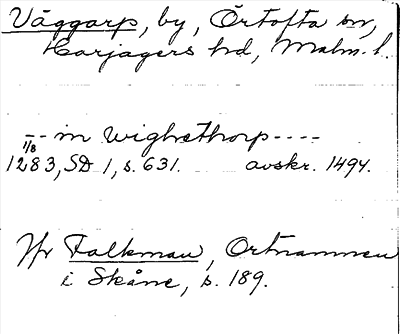 Väggarp, by, Örtofta sn,
Harjagers hd, Malm. l.
-- in wighsthorp ----
1/8
1283, SD 1, s. 631. avskr. 1494.
Jfr Falkman, Ortnamnen
i Skåne, s. 189.